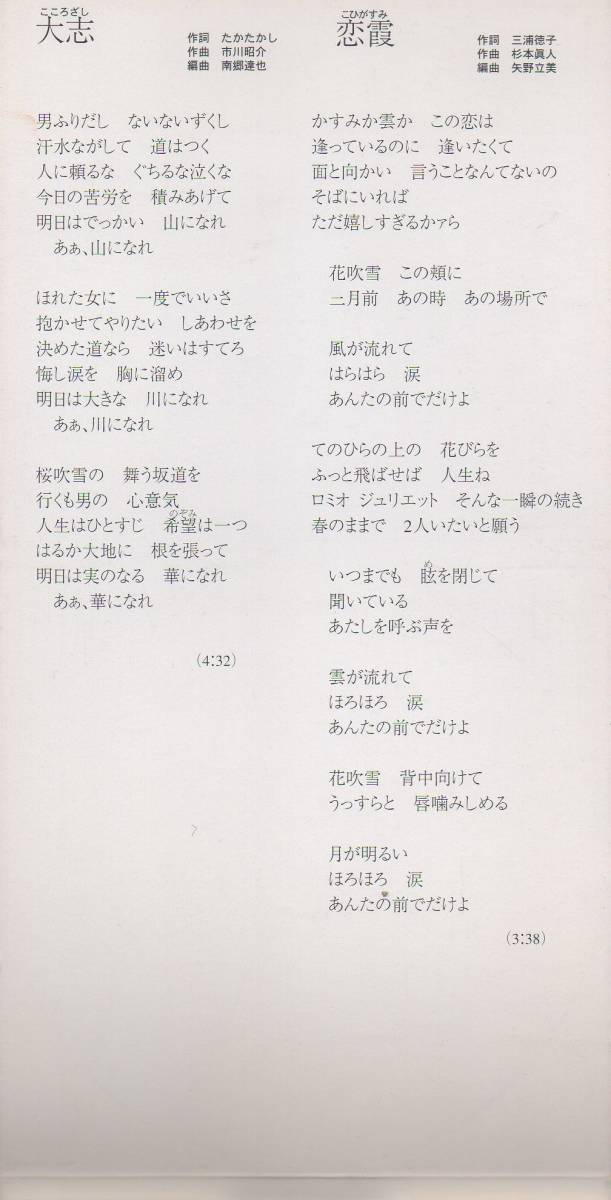 こころざし
大志
作詞 たかたかし
作曲 市川昭介
編曲 南郷達也
男ふりだし ないないずくし
汗水ながして 道はつく
人に頼るな ぐちるな泣くな
今日の苦労を 積みあげて
明日はでっかい 山になれ
あぁ、山になれ
ほれた女に 一度でいいさ
抱かせてやりたい しあわせを
決めた道なら 迷いはすてろ
悔し涙を 胸に溜め
明日は大きな 川になれ
あぁ、川になれ
桜吹雪の 舞う坂道を
行くも男の 心意気
のぞみ
人生はひとすじ 希望は一つ
はるか大地に 根を張って
明日は実のなる 華になれ
あぁ、華になれ
(4:32)
こひがすみ
恋霞
作詞 三浦徳子
作曲 杉本眞人
編曲 矢野立美
かすみか雲か この恋は
逢っているのに 逢いたくて
面と向かい 言うことなんてないの
そばにいれば
ただ嬉しすぎるかァら
花吹雪 この頬に
三月前 あの時 あの場所で
風が流れて
はらはら 涙
あんたの前でだけよ
てのひらの上の 花びらを
ふっと飛ばせば 人生ね
ロミオ ジュリエット そんな一瞬の続き
春のままで 2人いたいと願う
め
いつまでも 眩を閉じて
聞いている
あたしを呼ぶ声を
雲が流れて
ほろほろ 涙
あんたの前でだけよ
花吹雪 背中向けて
うっすらと 唇噛みしめる
月が明るい
ほろほろ 涙
あんたの前でだけよ
(3:38)